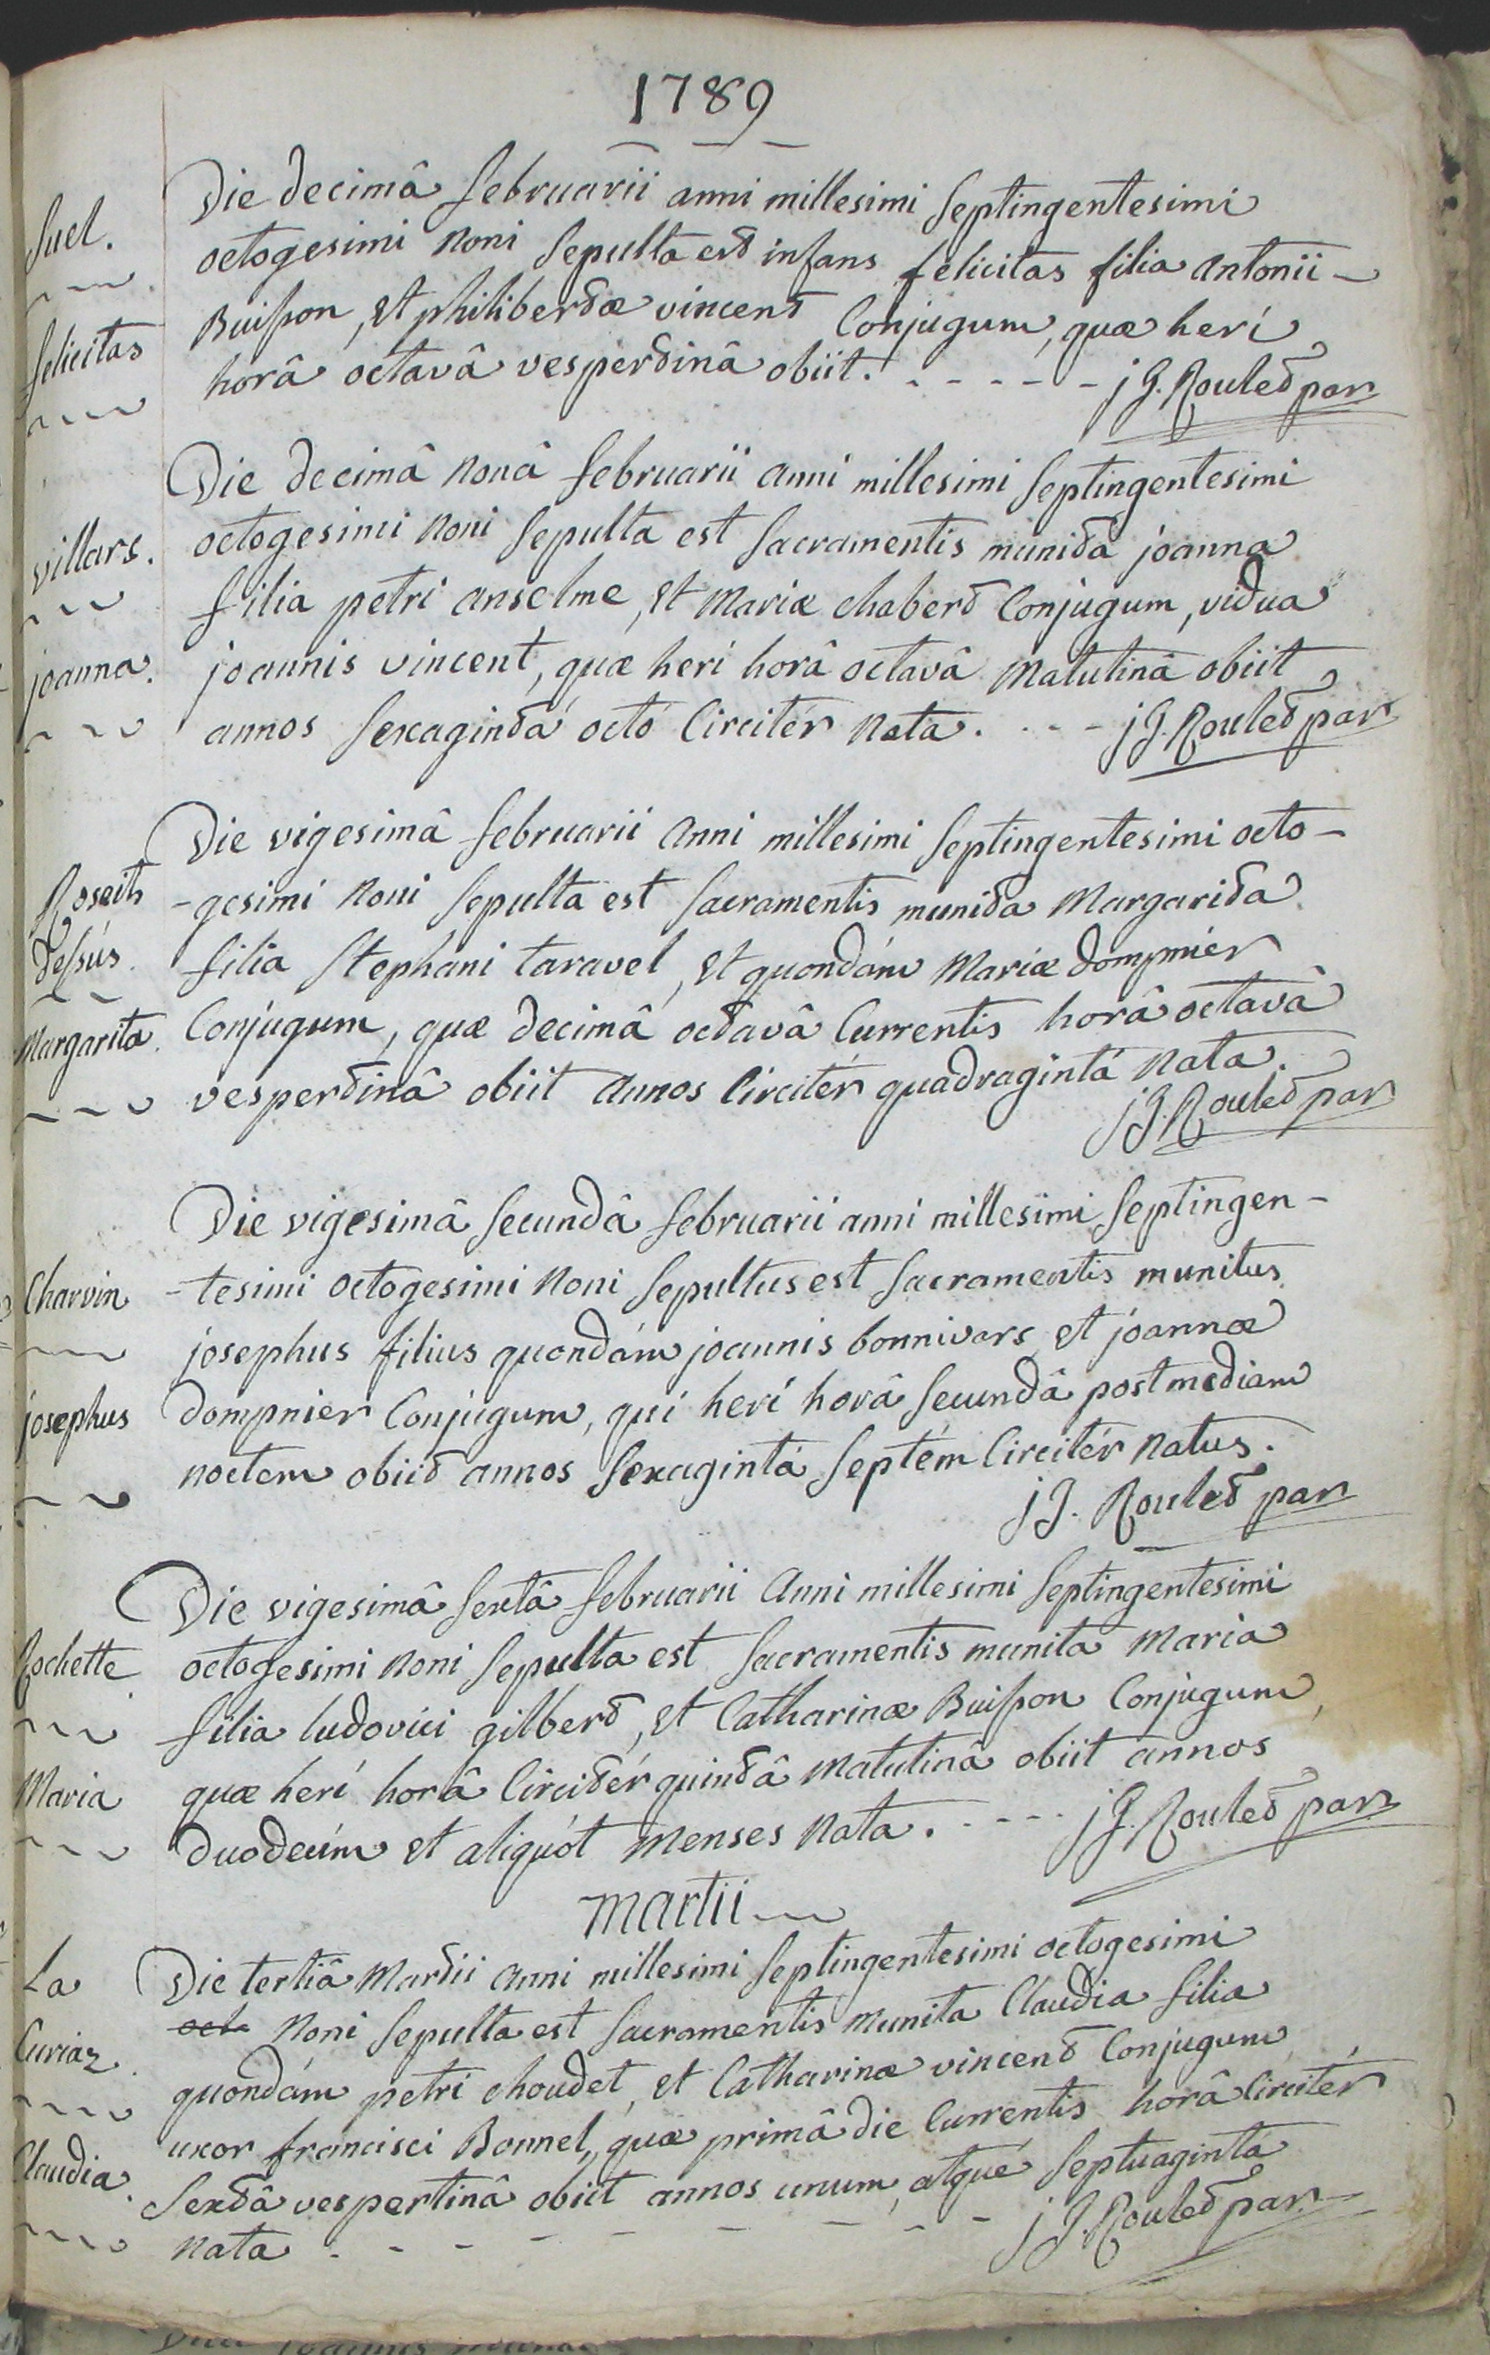 1789
Suel.
felicitas
Die decimâ februarii anni millesimi septingentesimi
octogesimi noni sepulta est infans felicitas filia antonii -
Buisson, et philibertæ vincent Conjugum, quæ heri
horâ octavâ vespertinâ obiit. - - - - - j J. Roulet par
villars.
joanna.
Die decimâ nonâ februarii anni millesimi septingentesimi
octogesimi noni sepulta est sacramentis munita joanna
filia petri anselme, et Mariæ chabert Conjugum, vidua
joannis vincent, quæ heri horâ octavâ Matutinâ obiit
annos sexagintá octó Circitér Nata. - - - j J. Roulet par
dessús
Margarita
Die vigesimâ februarii anni millesimi septingentesimi octo-
-gesimi noni sepulta est sacramentis munita Margarita
filia stephani taravel, et quondám Mariæ dompnier
Conjugum, quæ decimâ octavâ Currentis horâ octavâ
vespertinâ obiit annos Circitér quadragintá Nata.
j J. Roulet par
Charvin
josephus
Die vigesimâ secundâ februarii anni millesimi septingen-
-tesimi octogesimi noni sepultus est sacramentis munitus
josephus filius quondám joannis bonnivars et joannæ
dompnier Conjugum, qui heri horâ secundâ post mediam
noctem obiit annos sexagintá septém Circitér Natus.
j J. Roulet par
Rochette
Maria
Die vigesimâ sextâ februarii anni millesimi septingentesimi
octogesimi noni sepulta est sacramentis munita Maria
filia ludovici gilbert, et Catharinæ Buisson Conjugum,
quæ heri horâ Circitér quintâ Matutinâ obiit annos
duodecím et aliquót Menses Nata. - - - - j J. Roulet par
Martii
La
Curiaz
Claudia.
Die tertiâ Martii anni millesimi septingentesimi octogesimi
octo noni sepulta est sacramentis munita Claudia filia
quondám petri choudet, et Catharinæ vincent Conjugum
uxor francisci Bonnel, quæ primâ die Currentis horâ Circitér
sextâ vespertinâ obiit annos unum, atqué septuagintá
Nata - - - - - - - - j J. Roulet par